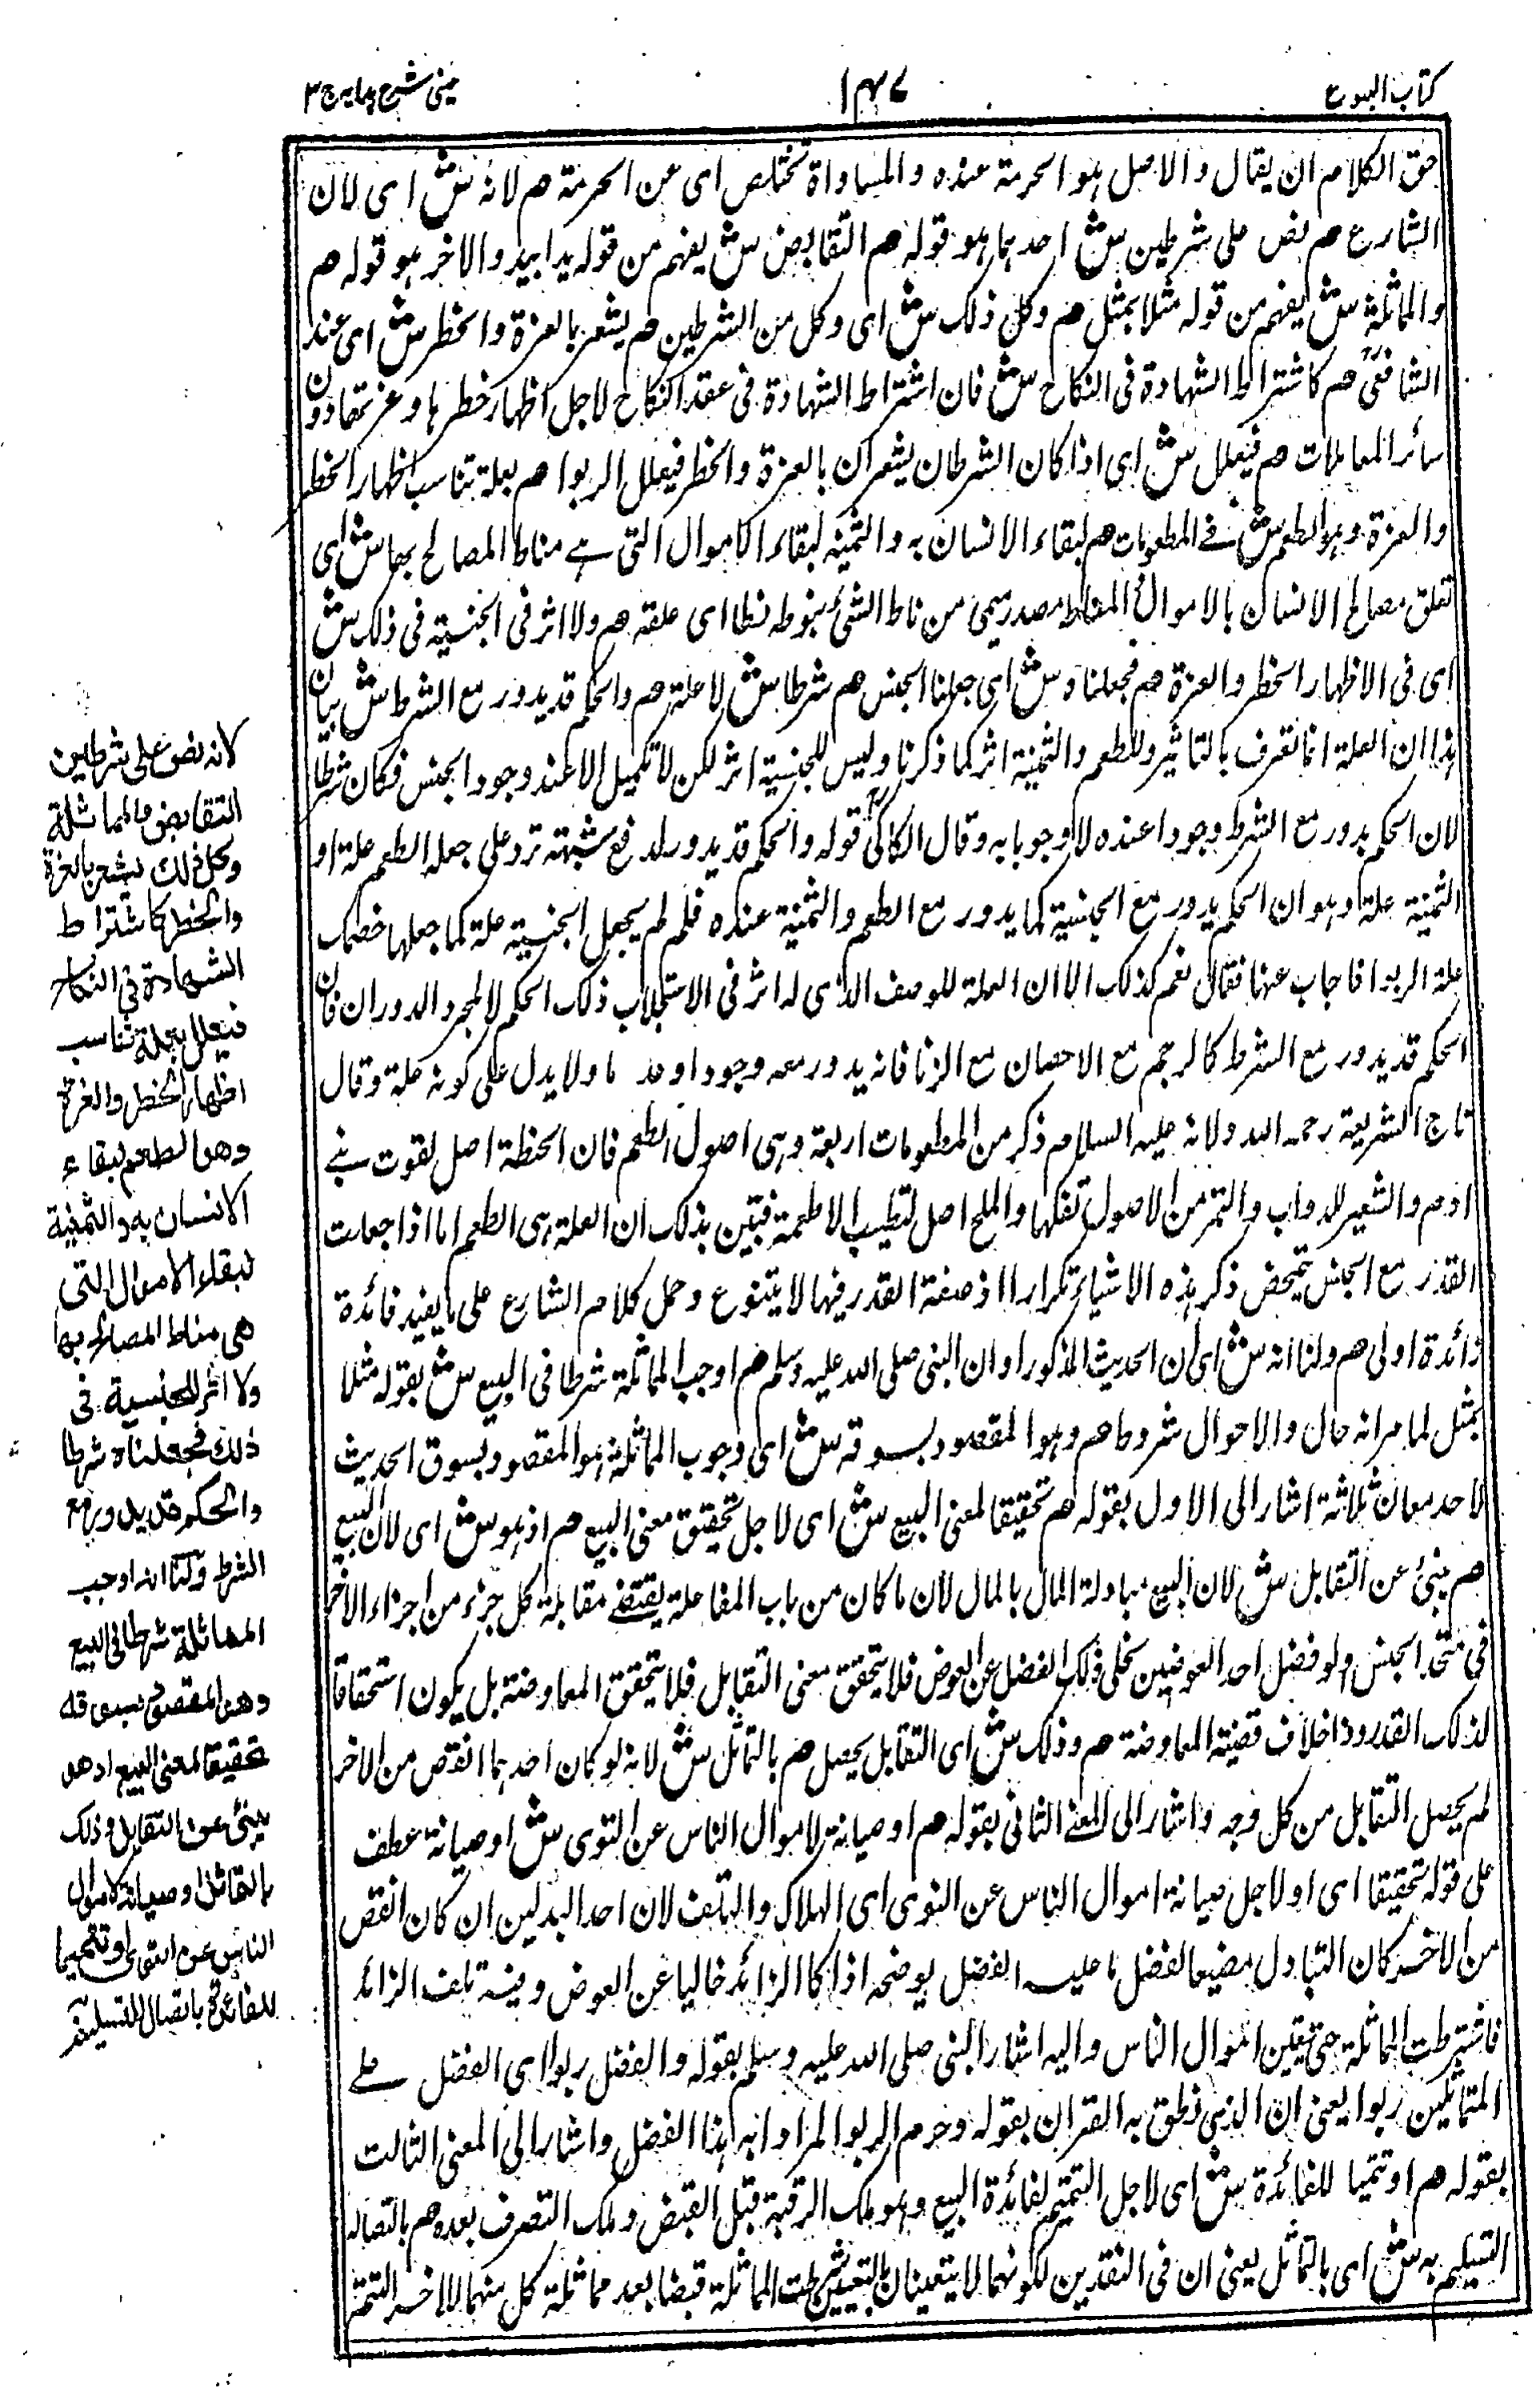 كتاب البيوع
١٤٧
عينى شرح هدايه ج ٣
حق الكلام ان يقال والاصل هو الحرمة عنده والمساواة تخلص اى عن الحرمة هم لانه ش اى لان
الشارع هم نص على شرطين ش احدهما هو قوله هم التقابض ش يفهم من قوله يدا بيد والاخر هو قوله هم
والمماثلة ش يفهم من قوله مثلا بمثل هم وكل ذلك ش اى وكل من الشرطين هم يشعر بالعزة والخطر ش اى عند
الشافعىؒ هم كاشتراط الشهادة فى النكاح ش فان اشتراط الشهادة فى عقد النكاح لاجل اظهار خطرها وعزتها دون
سائر المعاملات هم فيعلل ش اى اذا كان الشرطان يشعران بالعزة والخطر فيعلل الربوا هم بعلة تناسب اظهار الخطر
والعزة وهو الطعم ش فى المطعومات هم لبقاء الانسان به والثمنية لبقاء الاموال التى هى مناط المصالح بها ش اى
تعلق مصالح الانسان بالاموال المناط مصدر ميمى من ناط الشئ ينوطه نطا اى علقه هم ولا اثر فى الجنسية فى ذلك ش
اى فى الاظهار الخطر والعزة هم فجعلناه ش اى جعلنا الجنس هم شرطا ش لا علة هم والحكم قد يدور مع الشرط ش بيان
هذا ان العلة انما تعرف بالتاثير وللطعم والثمنية اثر كما ذكرنا وليس للجنسية اثر لكن لا تكميل الا عند وجود الجنس فكان شرطا
لان الحكم يدور مع الشرط وجودا عنده لا وجوبا به وقال الكاكىؒ قوله والحكم قد يدور لدفع شبهة ترد على جعله الطعم علة او
الثمنية علة وهو ان الحكم يدور مع الجانسية كما يدور مع الطعم والثمنية عنده فلم لم يجعل الجنسية علة كما جعلها خصمك
علة الربوا فاجاب عنها فقال نعم كذلك الا ان العلة للوصف الذى له اثر فى الاستجلاب ذلك الحكم لا لمجرد الدوران فان
الحكم قد يدور مع الشرط كالرجم مع الاحصان مع الزنا فانه يدور معه وجودا وعد ما ولا يدل على كونه علة وقال
تاج الشريعة رحمه الله ولانه عليه السلام ذكر من المطعومات اربعة وهى اصول الطعم فان الحنطة اصل لقوت بنى
ادم والشعير للدواب والتمر من الاصول تفكها والملح اصل لتطييب الاطعمة فتبين بذلك ان العلة هى الطعم اما اذا جعلت
القدر مع الجنس يتمحض ذكر هذه الاشياء تكرارا اذ صفة القدر فيها لا يتنوع وحمل كلام الشارع على ما يفيد فائدة
زائدة اولى هم ولنا انه ش اى ان الحديث المذكور او ان النبى صلى الله عليه وسلم هم اوجب المماثلة شرطا فى البيع ش بقوله مثلا
بمثل لما مر انه حال والاحوال شروط هم وهو المقصود بسوقه ش اى وجوب المماثلة هو المقصود بسوق الحديث
لاحد معان ثلاثة اشار الى الاول بقوله هم تحقيقا لمعنى البيع ش اى لاجل تحقيق معنى البيع هم اذ هو ش اى لان البيع
هم ينبئ عن التقابل ش لان البيع مبادلة المال بالمال لان ما كان من باب المفاعلة يقتضى مقابلة كل جزء من اجزاء الاخر
فى متحد الجنس ولو فضل احد العوضين يخلى ذلك الفضل عن العوض فلا يتحقق معنى التقابل فلا يتحقق المعاوضة بل يكون استحقاقا
لذلك القدر وذا خلاف قضية المعاوضة هم وذلك ش اى التقابل يحصل هم بالتماثل ش لانه لو كان احدهما انقص من الاخر
لم يحصل التقابل من كل وجه واشار الى المعنى الثانى بقوله هم او صيانة لاموال الناس عن التوى ش او صيانة عطف
على قوله تحقيقا اى او لاجل صيانة اموال الناس عن التوى اى الهلاك والتلف لان احد البدلين ان كان انقص
من الاخر كان التبادل مضيعا لفضل ما عليه الفضل يوضحه اذا كا الزائد خاليا عن العوض وفيه تلف الزائد
فاشترطت المماثلة حتى يقين اموال الناس واليه اشار النبى صلى الله عليه وسلم بقوله والفضل ربوا اى الفضل على
المتماثلين ربوا يعنى ان الذى نطق به القران بقوله وحرم الربوا المراد به هذا الفضل واشار الى المعنى الثالث
بقوله هم او تتميما للفائدة ش اى لاجل التتميم لفائدة البيع وهو ملك الرقبة قبل القبض وملك التصرف بعده هم باتصال
التسليم به ش اى بالتماثل يعنى ان فى النقدين لكونهما لا يتعينان بالتعيين شرطت المماثلة قبضا بعد مماثلة كل منهما للاخر التتم
لانه نص على شرطين
التقابض والمماثلة
وكل ذلك يشعر بالعزة
والخطر كاشتراط
الشهادة فى النكاح
فيعلل بعلة تناسب
اظهار الخطر والعزة
وهو الطعم لبقاء
الانسان به والثمنية
لبقاء الاموال التى
هى مناط المصالح بها
ولا اثر للجنسية فى
ذلك فجعلناه شرطا
والحكم قد يدور مع
الشرط ولنا انه اوجب
المماثلة شرطا فى البيع
وهو المقصود بسوقه
تحقيقا لمعنى البيع اذ هو
ينبئ عن التقابل وذلك
بالتماثل او صيانة لاموال
الناس عن التوى او تتميما
للفائدة باتصال التسليم